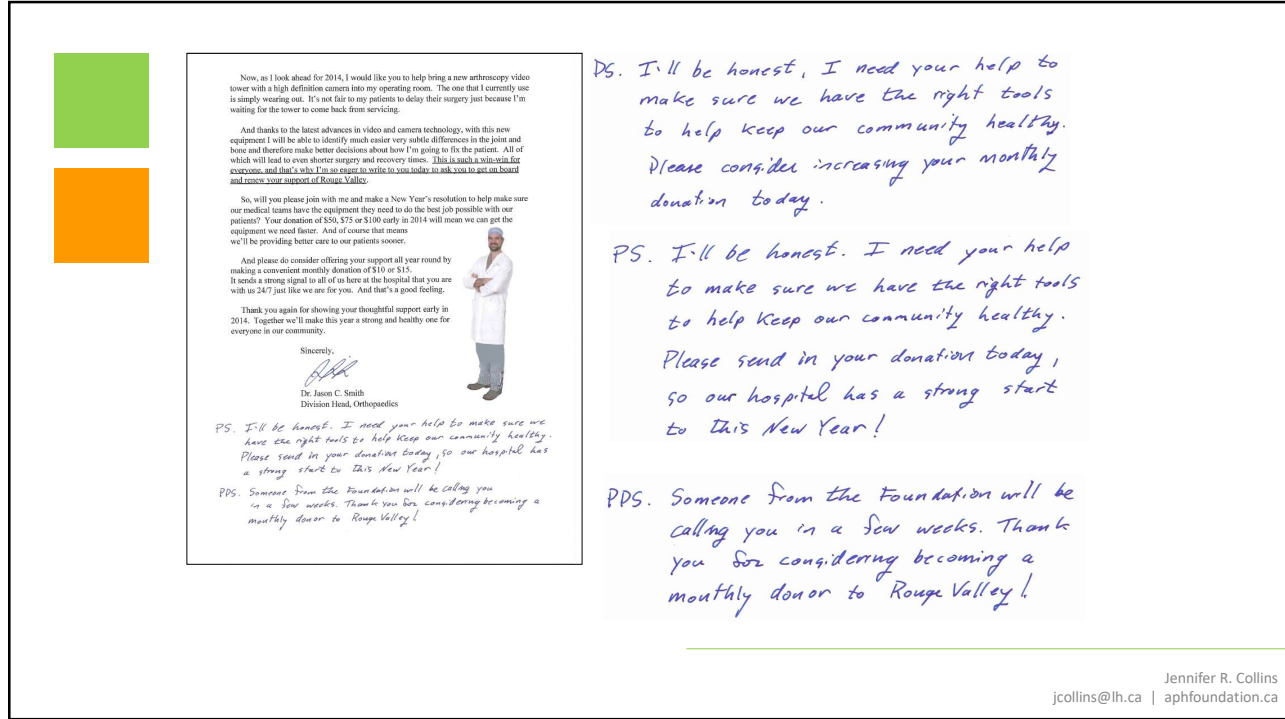 Now, as I look ahead for 2014, I would like you to help bring a new arthroscopy video
tower with a high definition camera into my operating room. The one that I currently use
is simply wearing out. It's not fair to my patients to delay their surgery just because I'm
waiting for the tower to come back from servicing.
And thanks to the latest advances in video and camera technology, with this new
equipment I will be able to identify much easier very subtle differences in the joint and
bone and therefore make better decisions about how I'm going to fix the patient. All of
which will lead to even shorter surgery and recovery times. This is such a win-win for
everyone, and that's why I'm so eager to write to you today to ask you to get on board
and renew your support of Rouge Valley.
So, will you please join with me and make a New Year's resolution to help make sure
our medical teams have the equipment they need to do the best job possible with our
patients? Your donation of $50, $75 or $100 early in 2014 will mean we can get the
equipment we need faster. And of course that means
we'll be providing better care to our patients sooner.
And please do consider offering your support all year round by
making a convenient monthly donation of $10 or $15.
It sends a strong signal to all of us here at the hospital that you are
with us 24/7 just like we are for you. And that's a good feeling.
Thank you again for showing your thoughtful support early in
2014. Together we'll make this year a strong and healthy one for
everyone in our community.
Sincerely,
Dr. Jason C. Smith
Division Head, Orthopaedics
PS. I'll be honest. I need your help to make sure we
have the right tools to help keep our community healthy.
Please send in your donation today, so our hospital has
a strong start to this New Year!
PPS. Someone from the Foundation will be calling you
in a few weeks. Thank you for considering becoming a
monthly donor to Rouge Valley!
PS. I'll be honest, I need your help to
make sure we have the right tools
to help keep our community healthy.
Please consider increasing your monthly
donation today.
PS. I'll be honest. I need your help
to make sure we have the right tools
to help keep our community healthy.
Please send in your donation today,
so our hospital has a strong start
to this New Year!
PPS. Someone from the Foundation will be
calling you in a few weeks. Thank
you for considering becoming a
monthly donor to Rouge Valley!
Jennifer R. Collins
jcollins@lh.ca | aphfoundation.ca